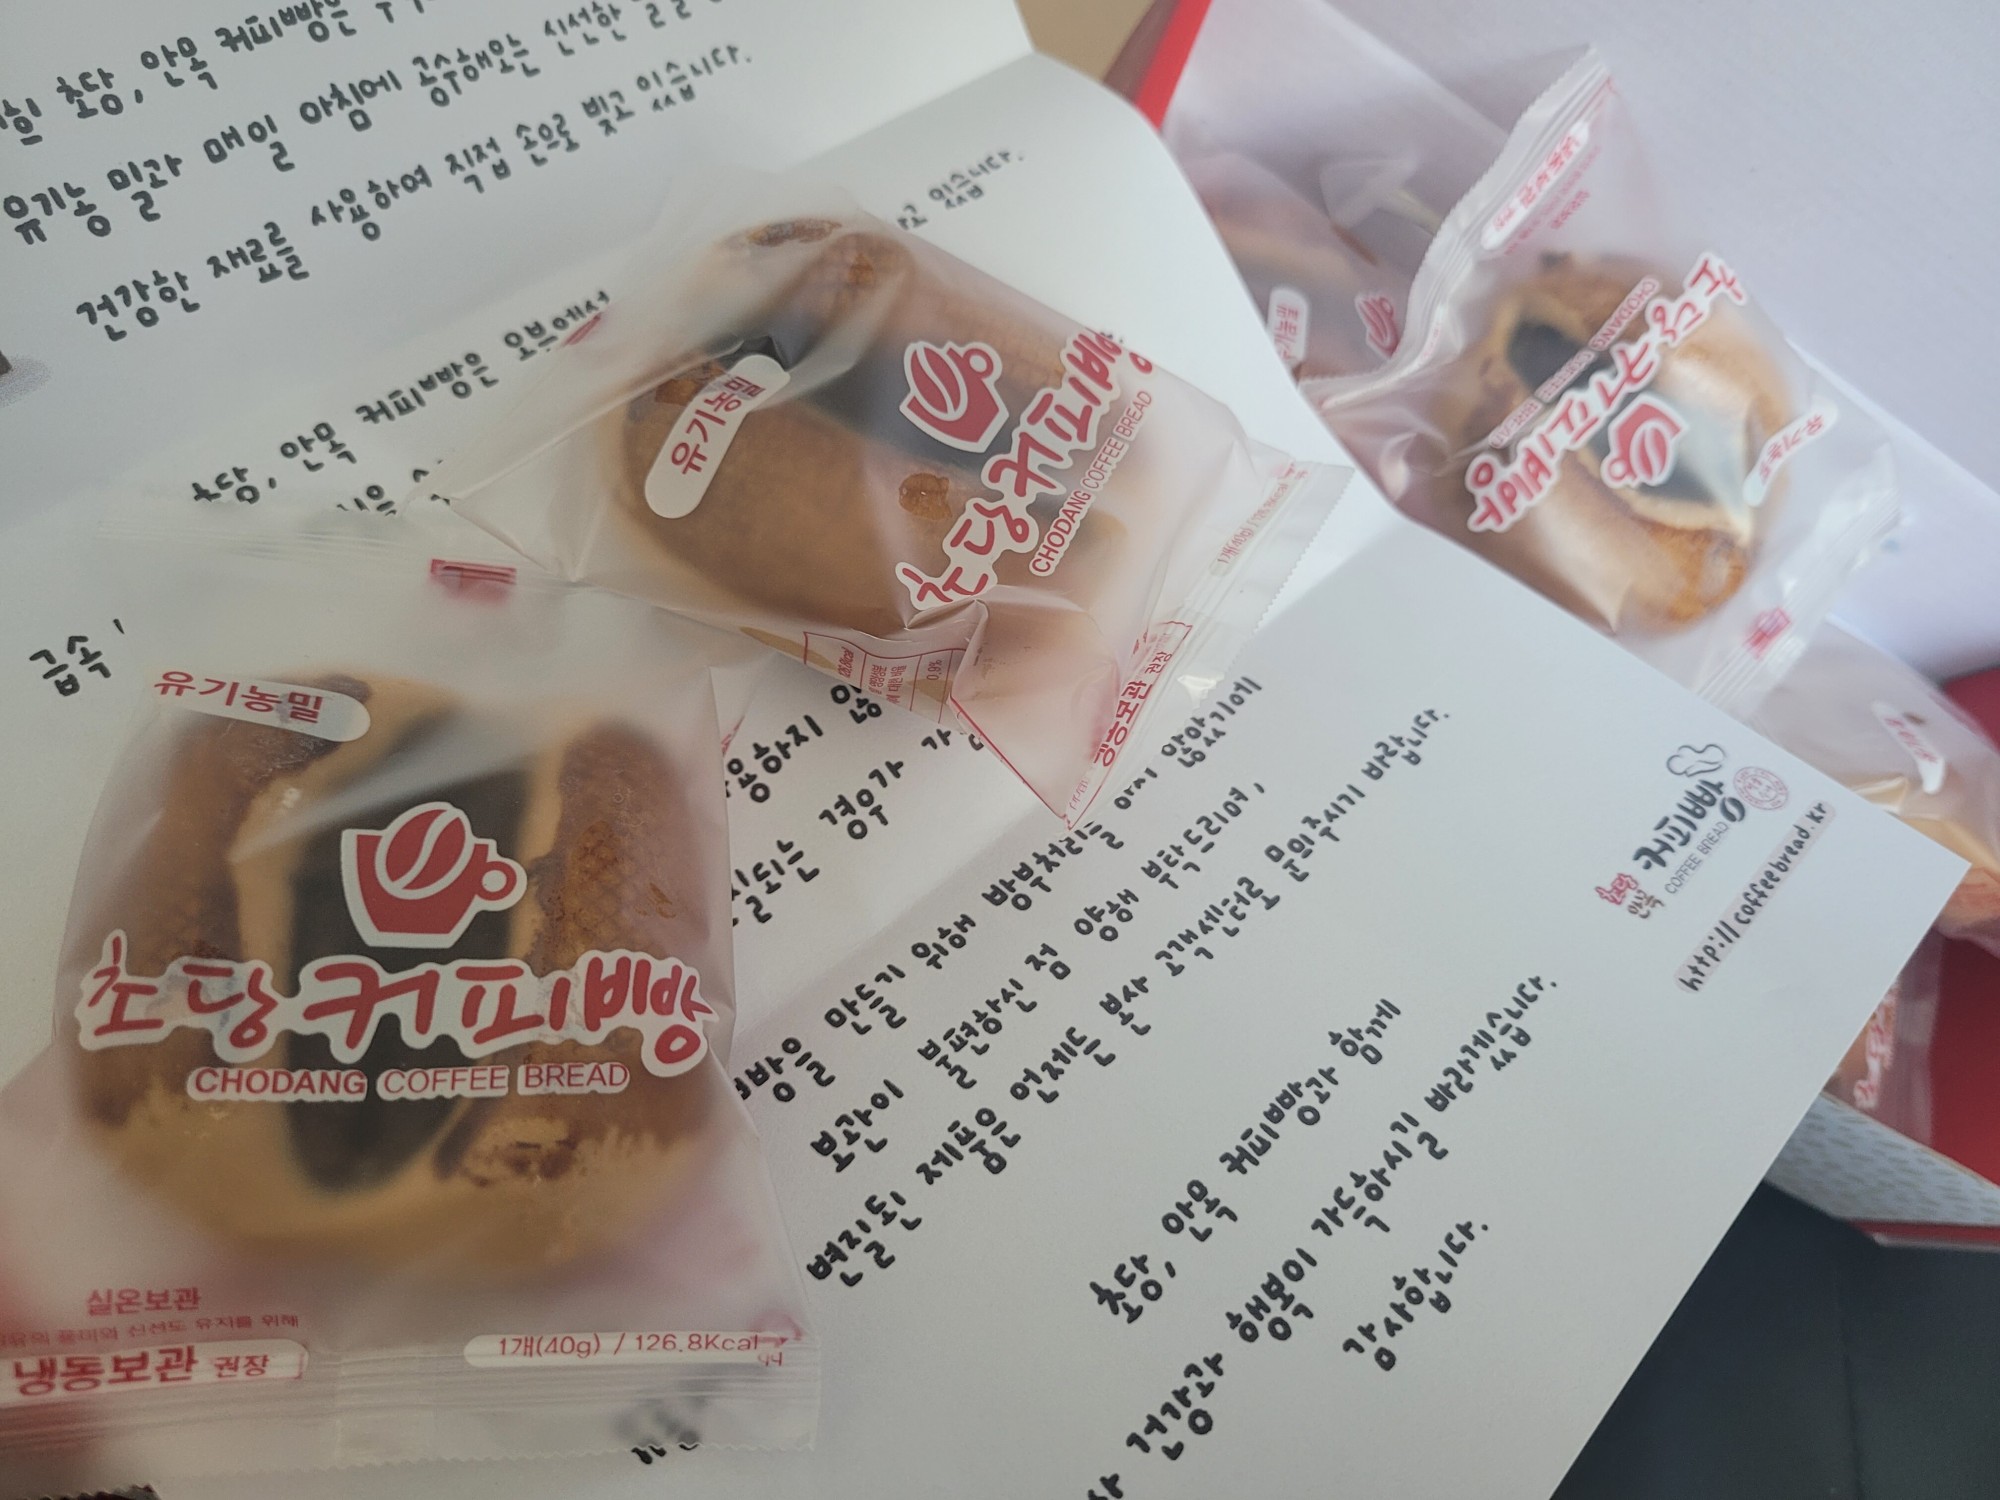 초당, 안목 커피빵은
유기농 밀과 매일 아침에 공수해오는 신선한
건강한 재료를 사용하여 직접 손으로 빚고 있습니다.
있습니다.
초당, 안목 커피빵은 오븐에서
급속
경우가
만들기 위해 방부처리를 하지 않았기에
보관이 불편하신 점 양해 부탁드리며,
변질된 제품은 언제든 본사 고객센터로 문의주시기 바랍니다.
초당, 안목 커피빵과 함께
건강과 행복이 가득하시길 바라겠습니다.
감사합니다.
초당
안목
커피빵
COFFEE BREAD
http://coffeebread.kr
유기농밀
초당커피빵
CHODANG COFFEE BREAD
실온보관
풍미와 신선도 유지를 위해
냉동보관 권장
1개(40g) / 126.8Kcal
유기농밀
초당커피빵
CHODANG COFFEE BREAD
1개(40g) / 126.8Kcal
0.9%
냉동보관 권장
초당커피빵
CHODANG COFFEE BREAD
유기농밀
냉동보관 권장
유기농밀